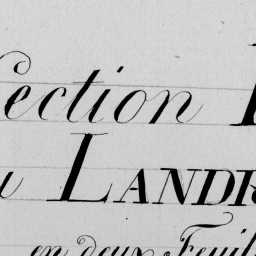 Section
LANDR
en deux Feuil